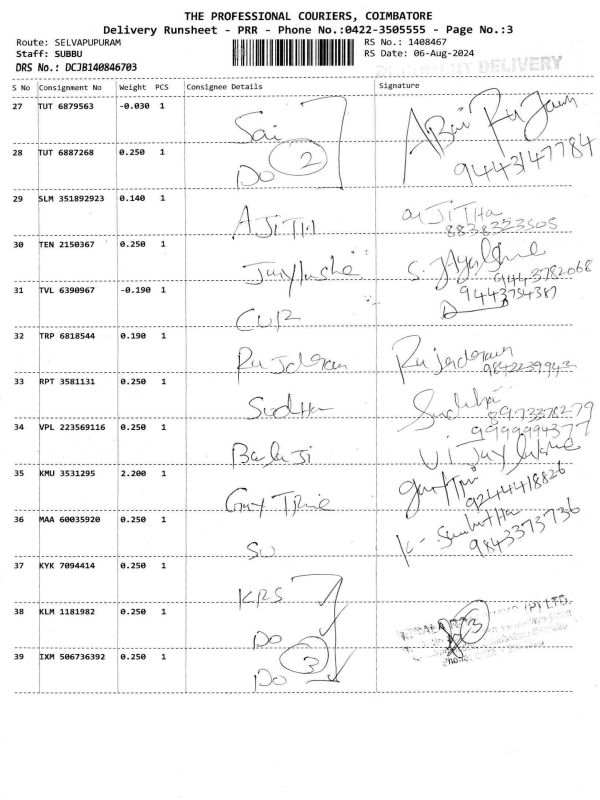 THE PROFESSIONAL COURIERS, COIMBATORE
Delivery Runsheet - PRR - Phone No.:0422-3505555 - Page No.:3
Route: SELVAPUPURAM RS No.: 1408467
Staff: SUBBU RS Date: 06-Aug-2024
DRS No.: DCJB140846703 DELIVERY
S No Consignment No Weight PCS Consignee Details Signature
27 TUT 6879563 -0.030 1 Sai
28 TUT 6887268 0.250 1 Do 2 9443147784
29 SLM 351892923 0.140 1 AJITH AJITHa 8838323505
30 TEN 2150367 0.250 1 9443782068
31 TVL 6390967 -0.190 1 CUR 9443754387
32 TRP 6818544 0.190 1 Rajderan 9842239943
33 RPT 3581131 0.250 1 Sudha Sudha 8973378279
34 VPL 223569116 0.250 1 Balaji 9999994377
35 KMU 3531295 2.200 1 9244418826
36 MAA 60035920 0.250 1 SU 9843373736
37 KYK 7094414 0.250 1 KRS
38 KLM 1181982 0.250 1 Do 3
39 IXM 506736392 0.250 1 Do 3